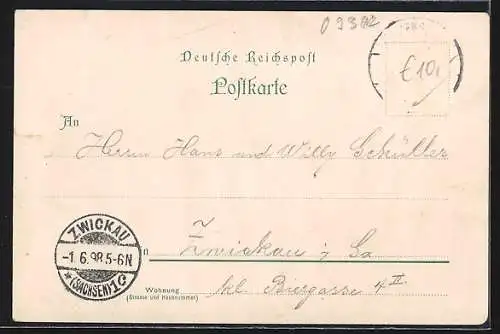 09382
€10,
Deutsche Reichspost
Postkarte
An
Herrn Hans und Willy Schüller
Z
Zwickau i/ Sa
in
Wohnung
(Strasse und Hausnummer)
kl. Biergasse 4 II
ZWICKAU
-1.6.98.5-6N.
*(SACHSEN)1c